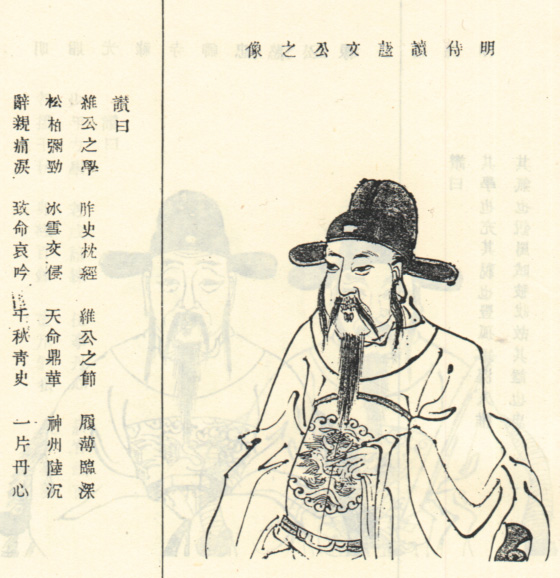 明侍讀文公之像
讚曰
維公之學 胙史枕經 維公之節 履薄臨深
松柏彌勁 冰雪交侵 天命鼎革 神州陸沉
辭親痛淚 致命哀吟 千秋青史 一片丹心